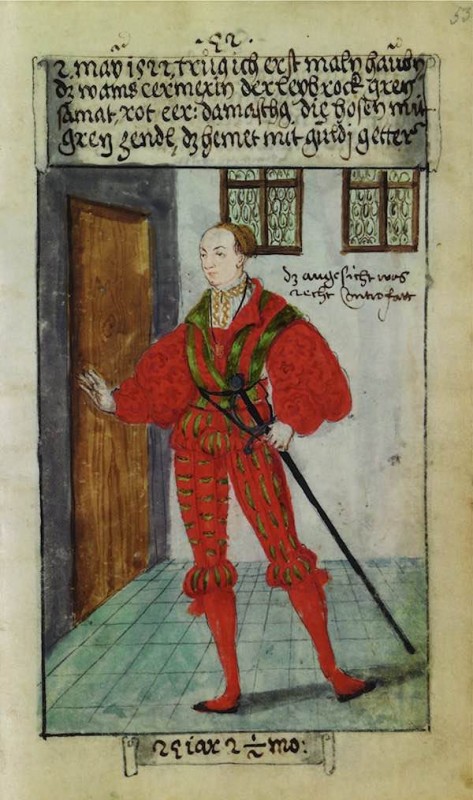 53
· 52 ·
2. may 1522 trug ich erst maln hauben
dz wams cermexin der leybrock gren
samat, rot eer: damaschg, die hosen mit
gren zendl, dz hemet mit guldj getter
dz angesicht was
recht Controfatt
25 iar 2 ½ mo: